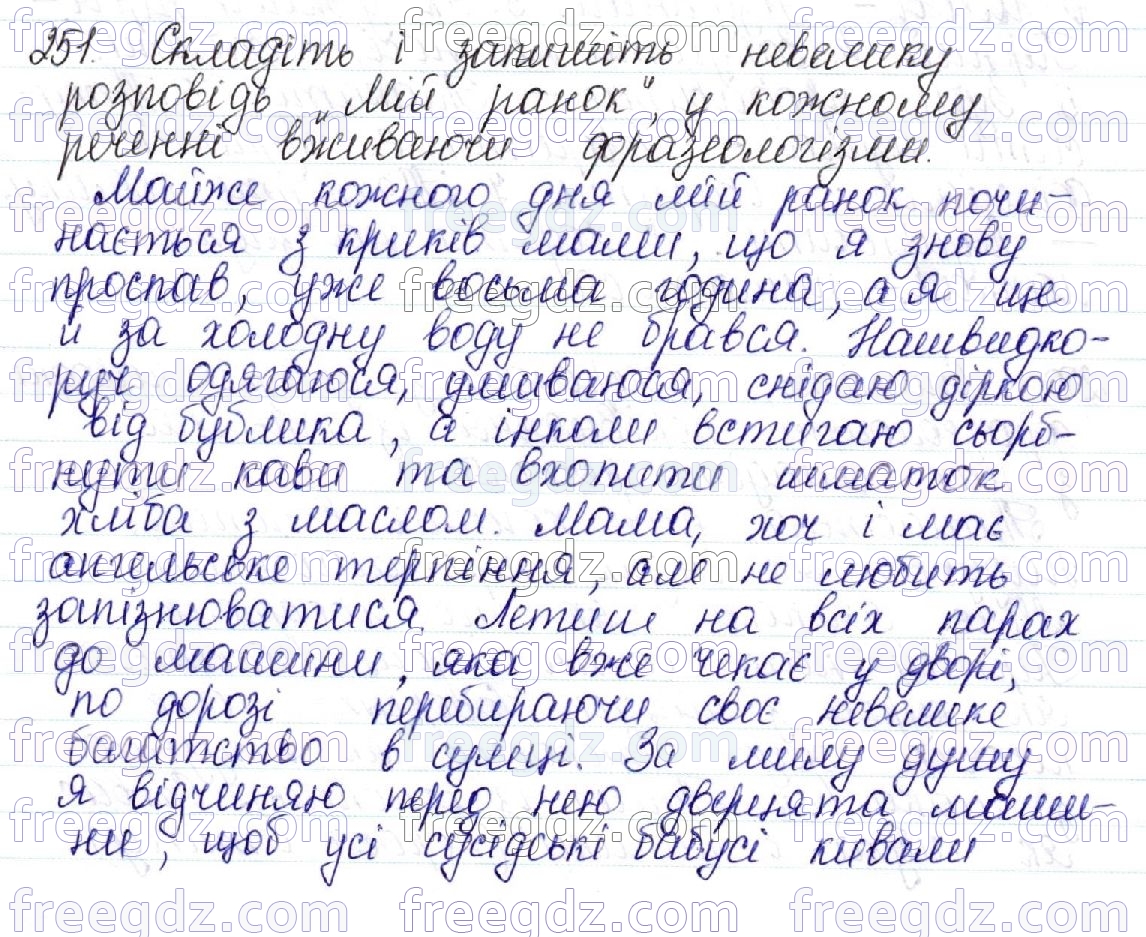 251. Складіть і запишіть невелику
розповідь „Мій ранок", у кожному
реченні вживаючи фразеологізми.
Майже кожного дня мій ранок почи-
нається з криків мами, що я знову
проспав, уже восьма година, а я ще
й за холодну воду не брався. Нашвидко-
руч одягаюся, умиваюся, снідаю діркою
від бублика, а інколи встигаю сьорб-
нути кави та вхопити шматок
хліба з маслом. Мама, хоч і має
ангельське терпіння, але не любить
запізнюватися. Летиш на всіх парах
до машини, яка вже чекає у дворі,
по дорозі перебираючи своє невелике
багатство в сумці. За милу душу
я відчиняю перед нею дверцята маши-
ни, щоб усі сусідські бабусі кивали
freegdz.com